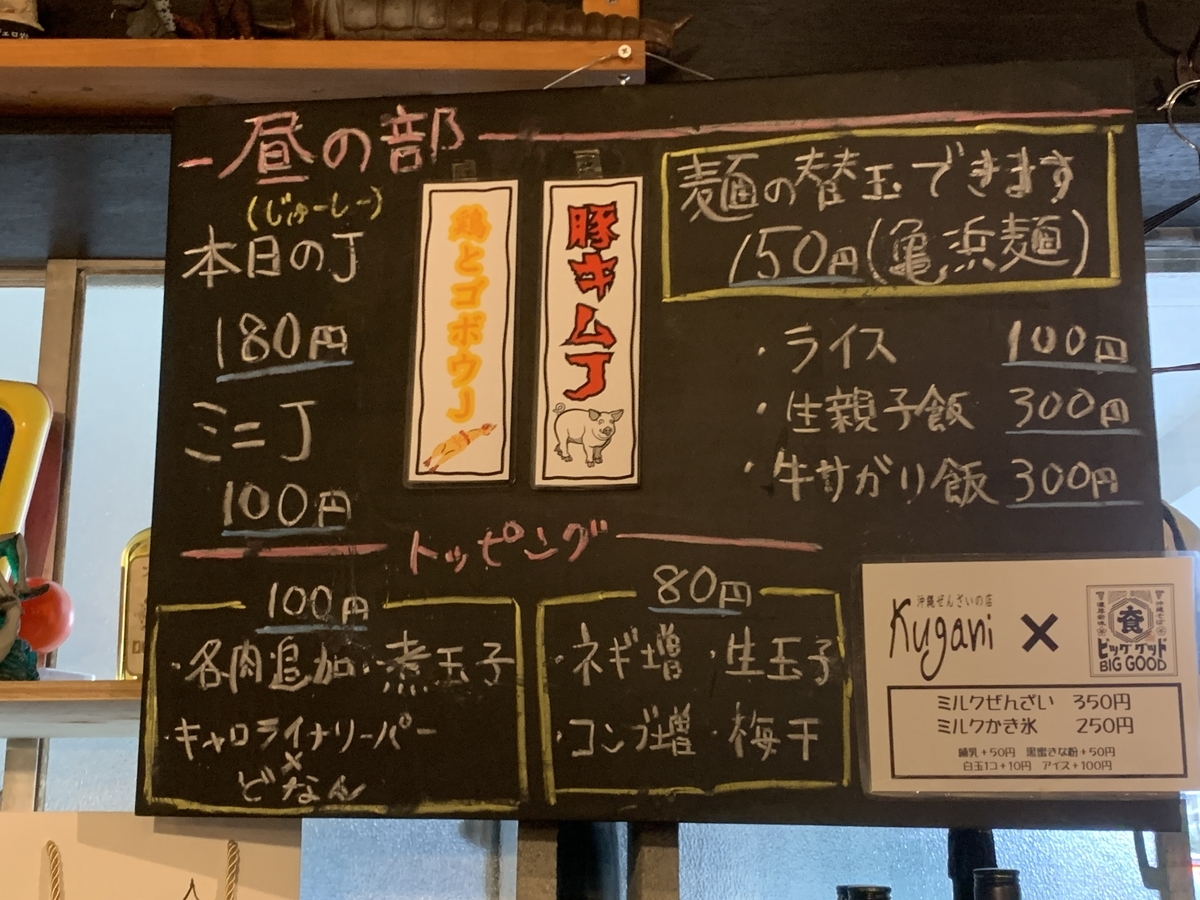 昼の部
(じゅーしー)
本日のJ
180円
ミニJ
100円
鶏とゴボウJ
豚キムJ
麺の替玉できます
150円(亀浜麺)
・ライス 100円
・生親子飯 300円
・牛サガリ飯 300円
トッピング
100円
・各肉追加・煮玉子
・キャロライナリーパー
×
どなん
80円
・ネギ増 ・生玉子
・コンブ増 ・梅干
沖縄ぜんざいの店
Kugani
×
食
ビッググッド
BIG GOOD
ミルクぜんざい 350円
ミルクかき氷 250円
練乳+50円 黒蜜きな粉+50円
白玉1コ+10円 アイス+100円